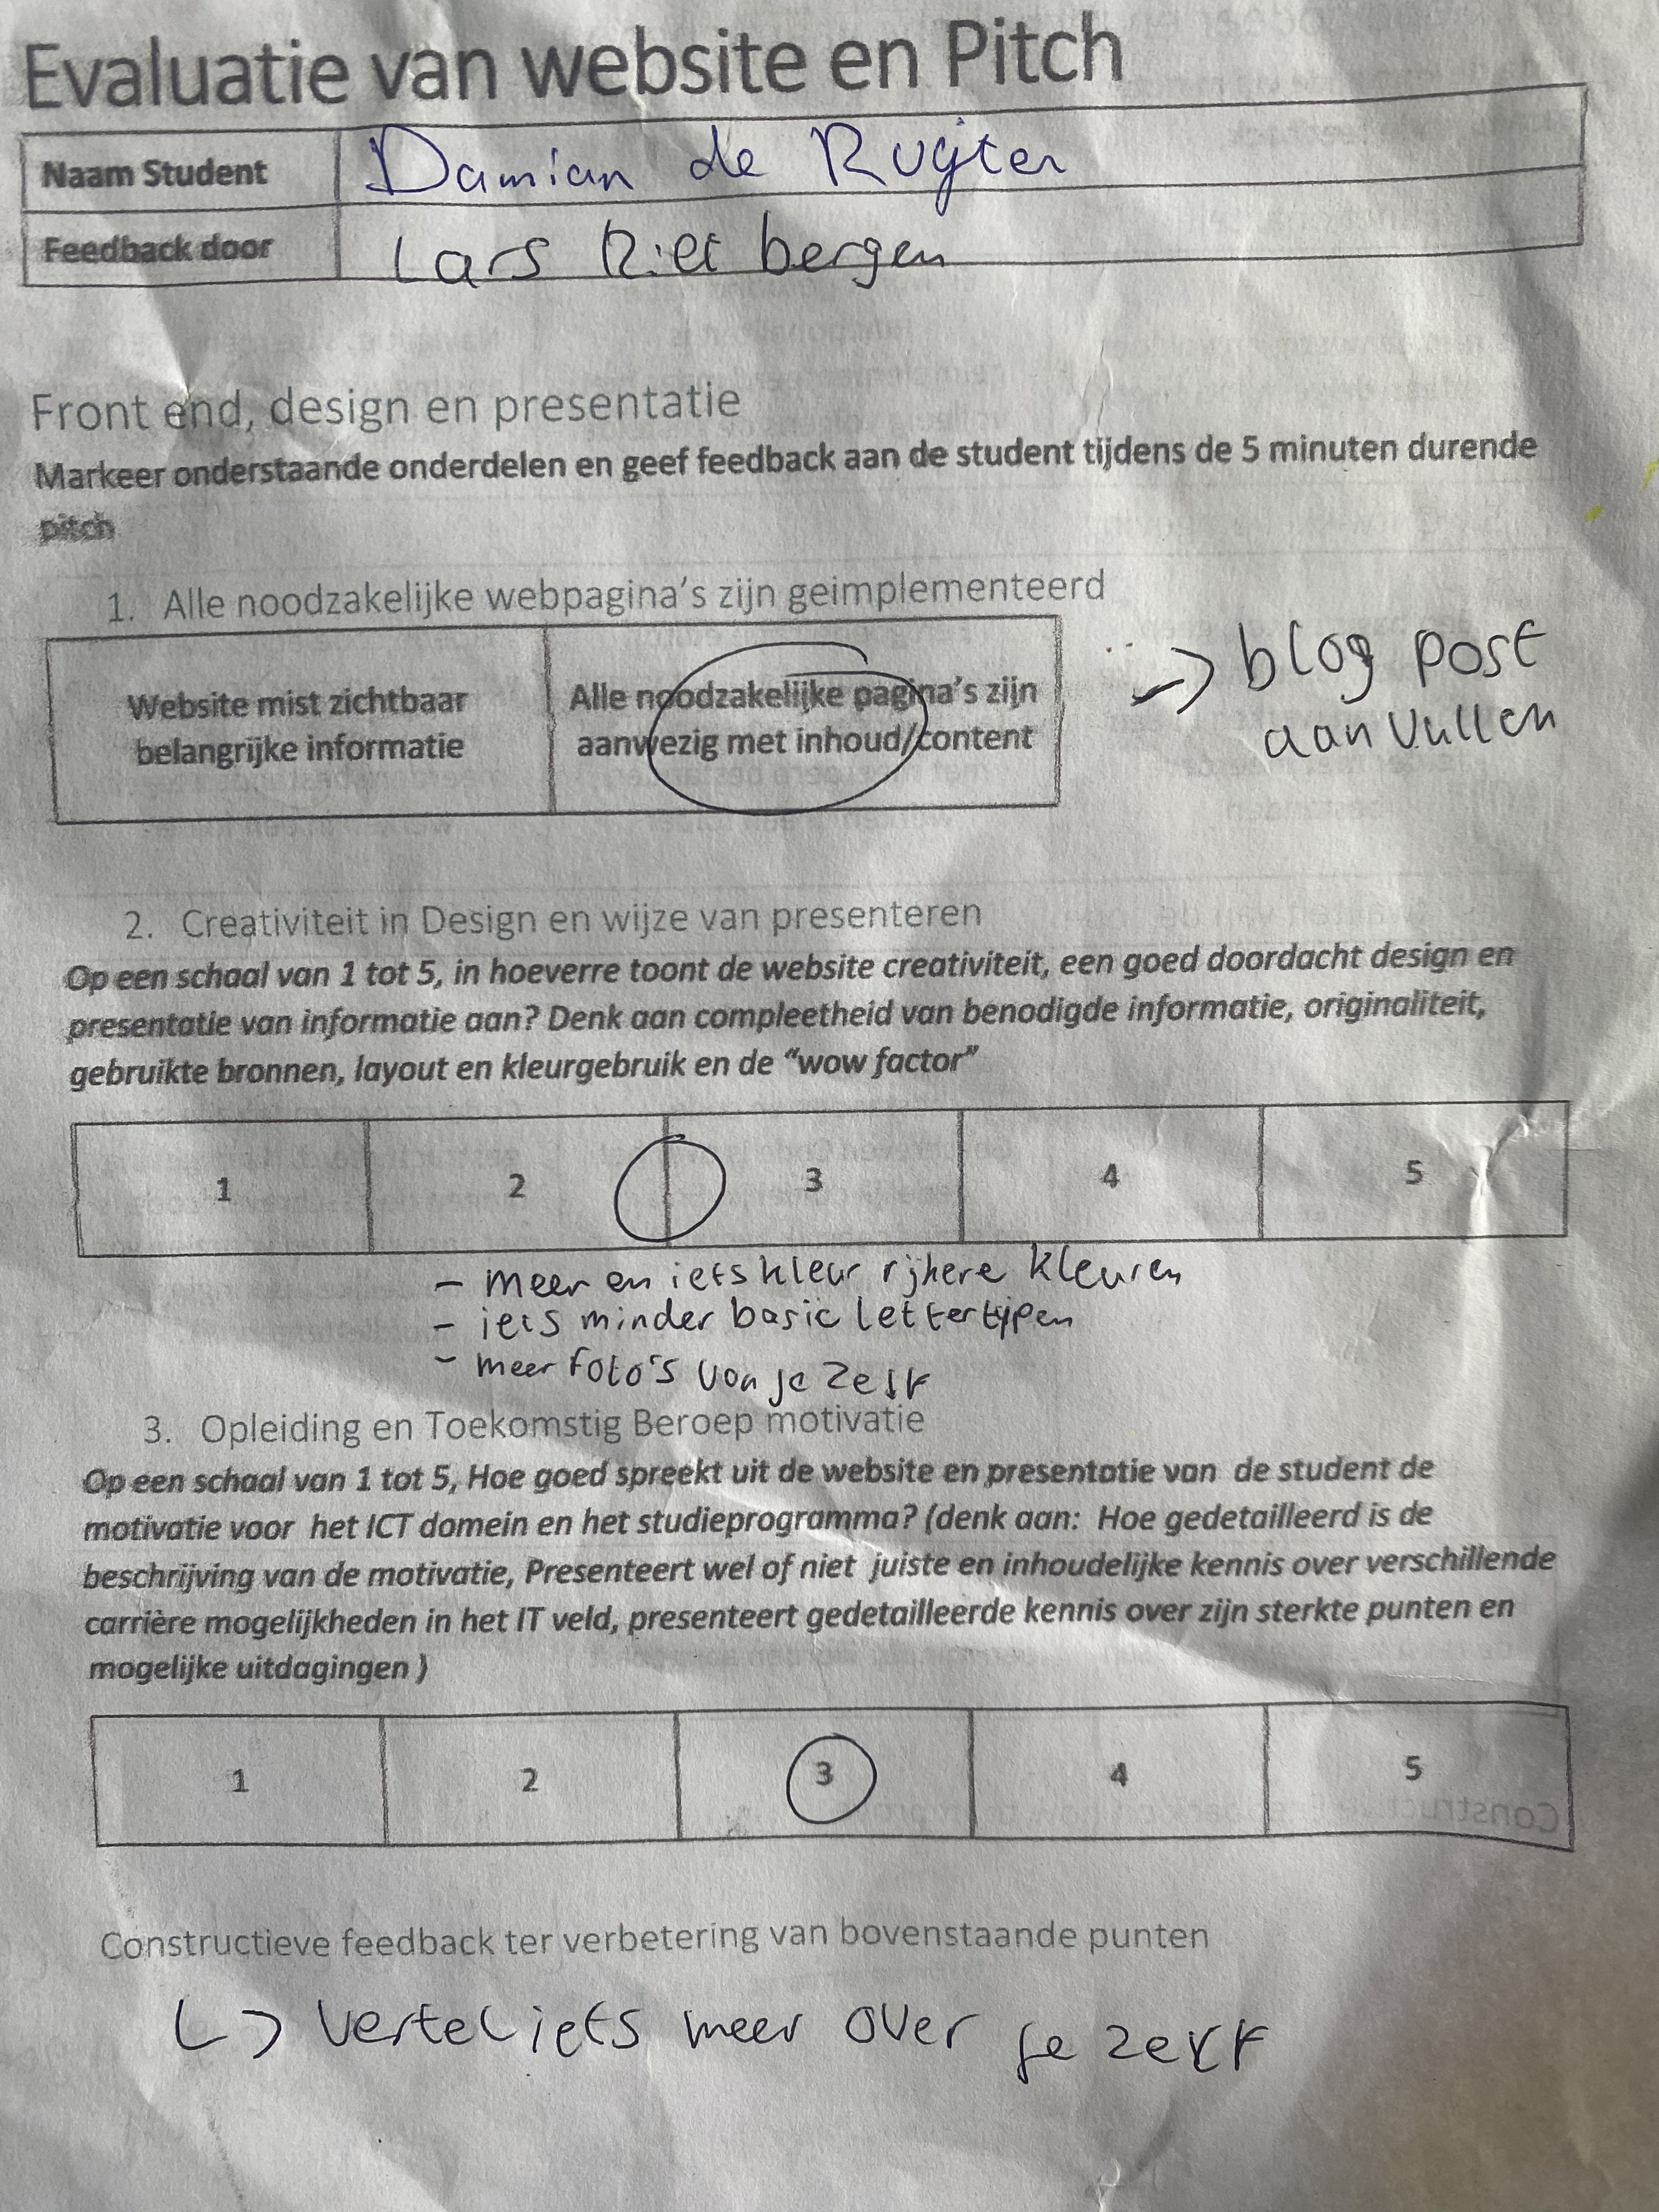 Evaluatie van website en Pitch
Naam Student Damian de Rugter
Feedback door Lars Riet bergen
Front end, design en presentatie
Markeer onderstaande onderdelen en geef feedback aan de student tijdens de 5 minuten durende
pitch
1. Alle noodzakelijke webpagina's zijn geimplementeerd
Website mist zichtbaar
belangrijke informatie
Alle noodzakelijke pagina's zijn
aanwezig met inhoud/content
-> blog post
aanvullen
2. Creativiteit in Design en wijze van presenteren
Op een schaal van 1 tot 5, in hoeverre toont de website creativiteit, een goed doordacht design en
presentatie van informatie aan? Denk aan compleetheid van benodigde informatie, originaliteit,
gebruikte bronnen, layout en kleurgebruik en de "wow factor"
1 2 3 4 5
- meer en iets kleur rijkere kleuren
- iets minder basic lettertijpen
- meer foto's van je zelf
3. Opleiding en Toekomstig Beroep motivatie
Op een schaal van 1 tot 5, Hoe goed spreekt uit de website en presentatie van de student de
motivatie voor het ICT domein en het studieprogramma? (denk aan: Hoe gedetailleerd is de
beschrijving van de motivatie, Presenteert wel of niet juiste en inhoudelijke kennis over verschillende
carrière mogelijkheden in het IT veld, presenteert gedetailleerde kennis over zijn sterkte punten en
mogelijke uitdagingen )
1 2 3 4 5
Constructieve feedback ter verbetering van bovenstaande punten
↳ vertel iets meer over je zelf